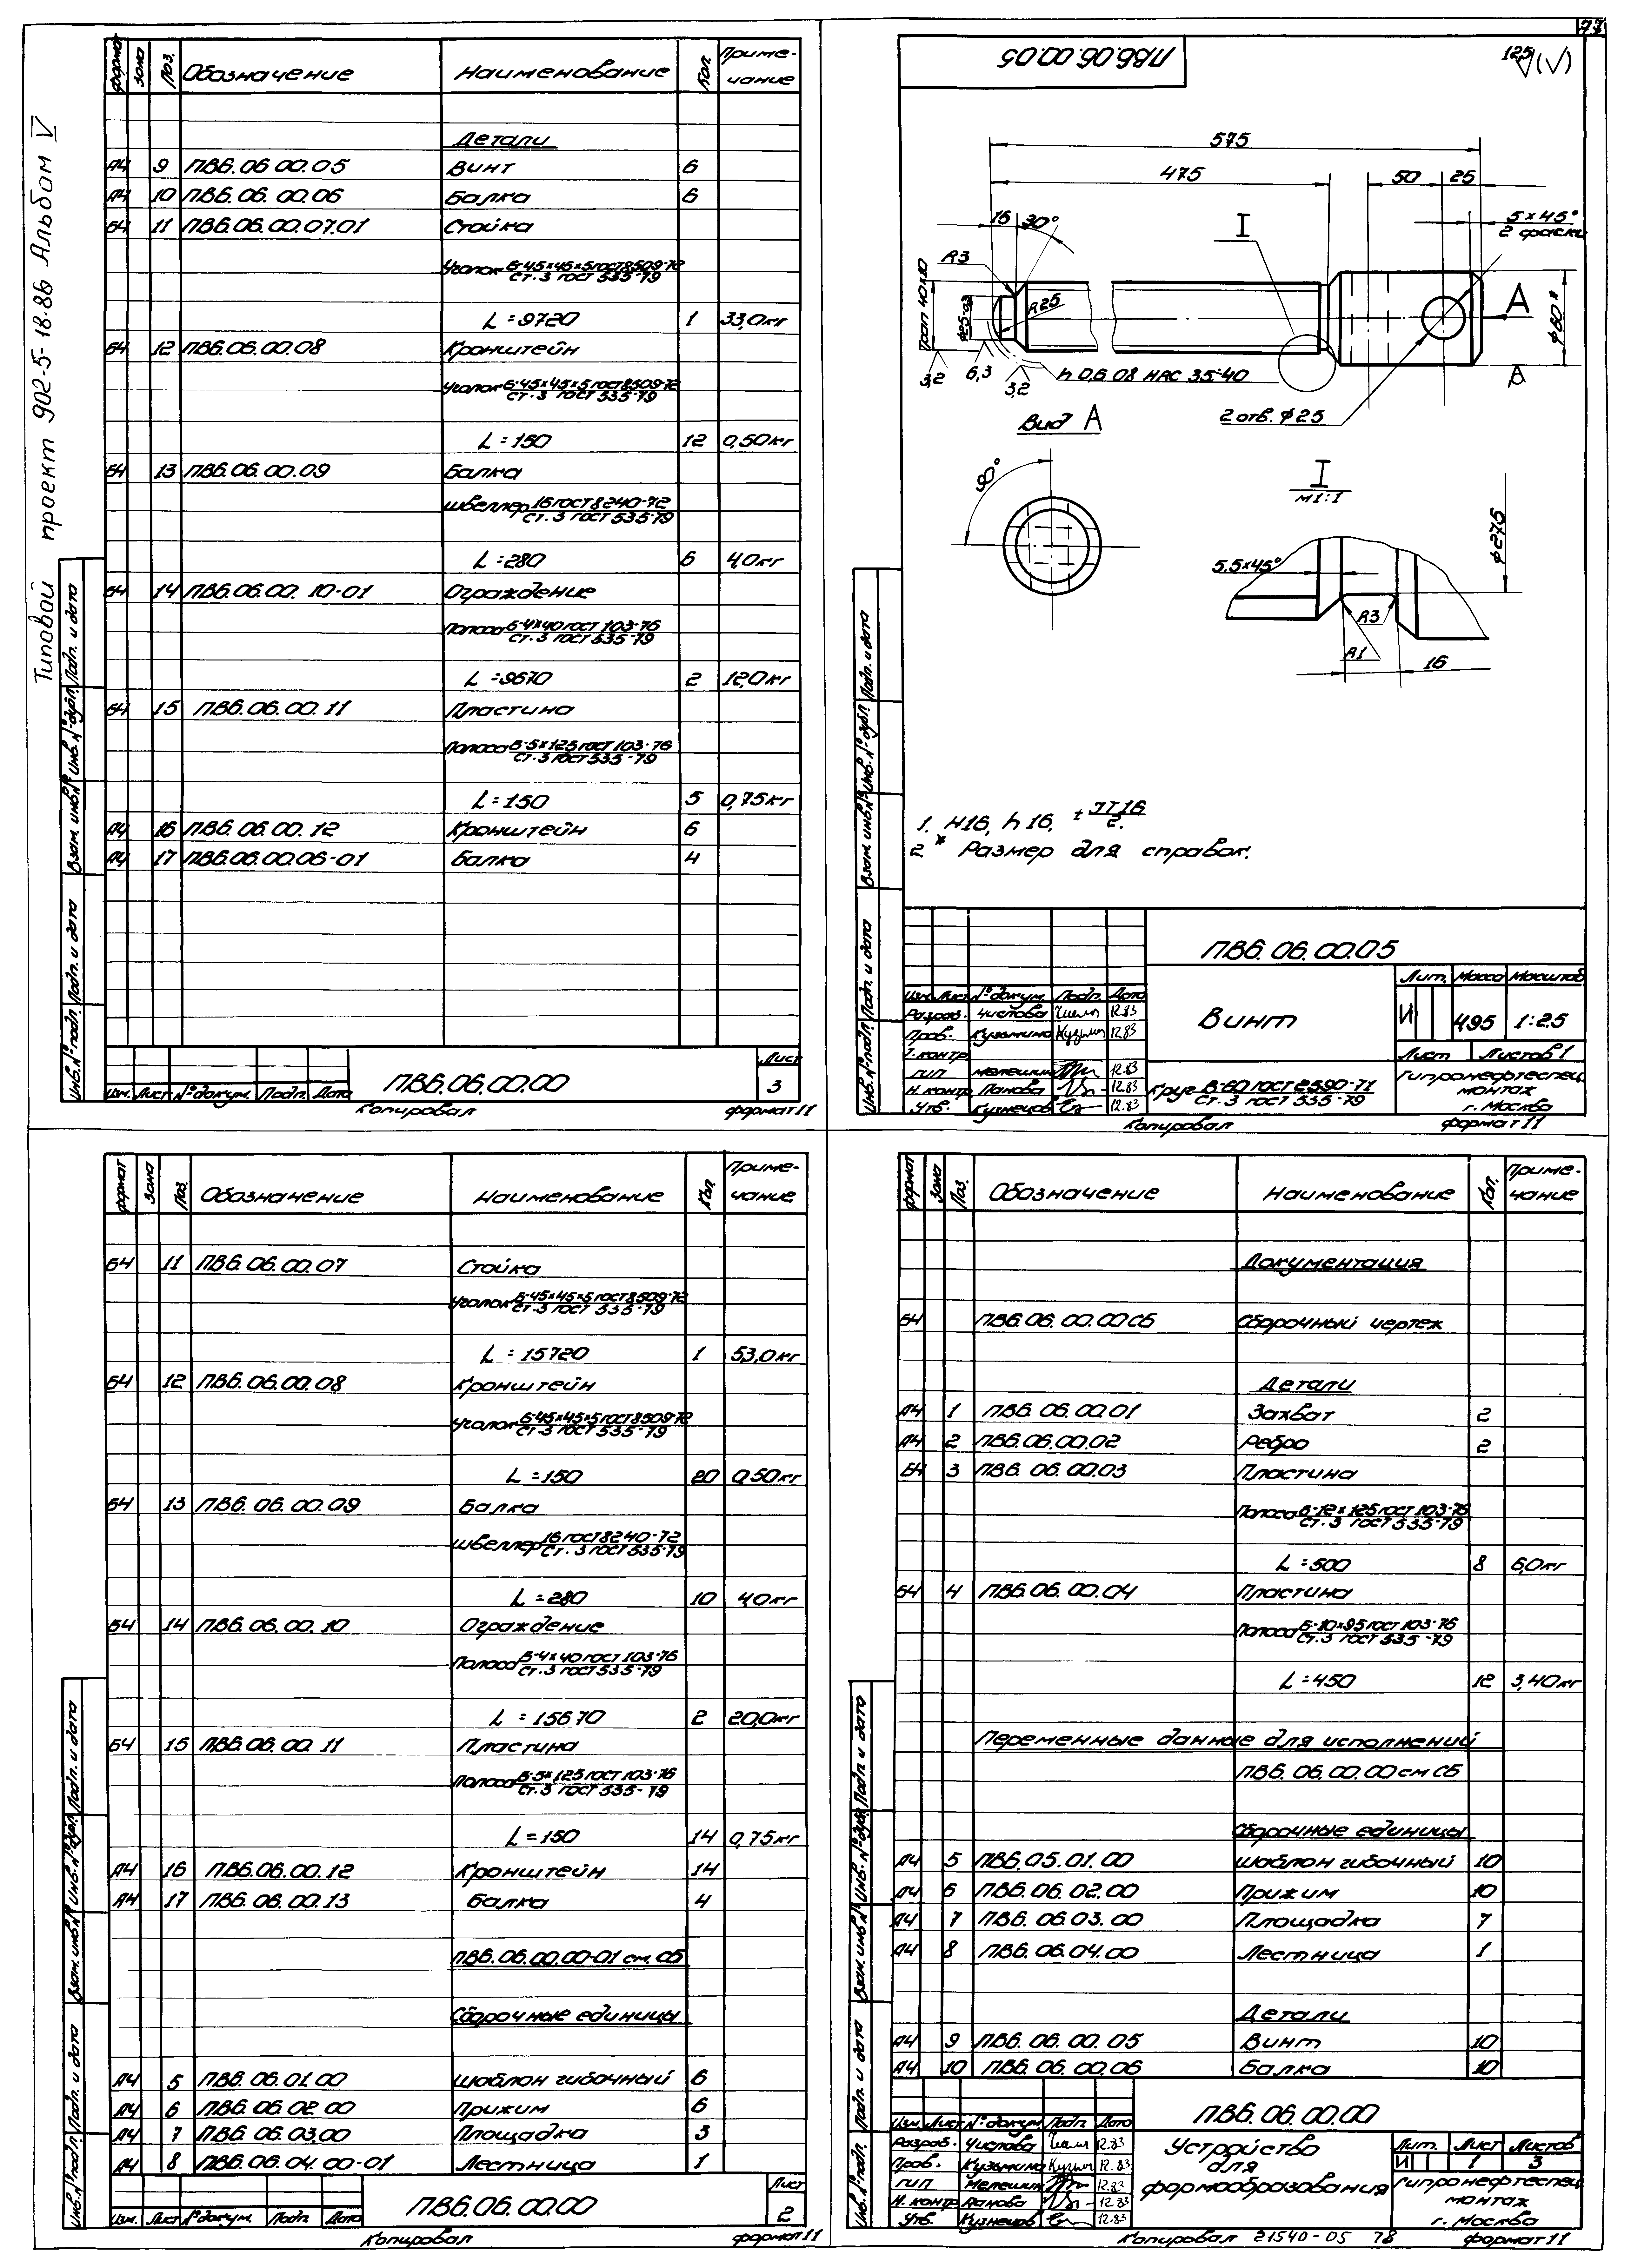 Типовой проект 902-5-18.86 Альбом V
формат зона Поз. Обозначение Наименование Кол. Приме-
чание
Детали
А4 9 ПВ6.06.00.05 Винт 6
А4 10 ПВ6.06.00.06 Балка 6
Б4 11 ПВ6.06.00.07.01 Стойка
Уголок Б-45×45×5 ГОСТ 8509-72
Ст.3 ГОСТ 535-79
L=9720 1 33,0кг
Б4 12 ПВ6.06.00.08 Кронштейн
Уголок Б-45×45×5 ГОСТ 8509-72
Ст.3 ГОСТ 535-79
L=150 12 0,50кг
Б4 13 ПВ6.06.00.09 Балка
Швеллер 16 ГОСТ 8240-72
Ст.3 ГОСТ 535-79
L=280 6 4,0кг
Б4 14 ПВ6.06.00.10-01 Ограждение
Полоса Б-4×40 ГОСТ 103-76
Ст.3 ГОСТ 535-79
L=9670 2 12,0кг
Б4 15 ПВ6.06.00.11 Пластина
Полоса Б-5×125 ГОСТ 103-76
Ст.3 ГОСТ 535-79
L=150 5 0,75кг
А4 16 ПВ6.06.00.12 Кронштейн 6
А4 17 ПВ6.06.00.06-01 Балка 4
Инв.№подл. Подп. и дата Взам. инв.№ Инв.№дубл. Подп. и дата
Изм. Лист №докум. Подп. Дата
ПВ6.06.00.00
Лист
3
Копировал формат 11
77
ПВ6.06.00.05
12,5 (√)
575
475 50 25
16 30° I 5×45°
2 фаски
R3 R25 А
Трап 40×10 ф60*
3,2 6,3 3,2 h 0,6 0,8 HRC 35-40 А
Вид А 2 отв. ф25
90° I
М1:1
ф27,5
5,5×45°
R3
R1 16
1. H16, h16, ± IT16
2.
2. * Размер для справок.
Инв.№подл. Подп. и дата Взам. инв.№ Инв.№дубл. Подп. и дата
ПВ6.06.00.05
Изм. Лист №докум. Подп. Дата
Разраб. Чистова 12.83
Пров. Кузьмина 12.83
Т.контр.
ГИП Мелешкин 12.83
Н.контр. Панова 12.83
Утв. Кузнецов 12.83
Винт
Круг В-60 ГОСТ 2590-71
Ст.3 ГОСТ 535-79
Лит. Масса Масштаб
И 4,95 1:2,5
Лист Листов 1
Гипронефтеспец
монтаж
г. Москва
Копировал формат 11
формат зона Поз. Обозначение Наименование Кол. Приме-
чание
Б4 11 ПВ6.06.00.07 Стойка
Уголок Б-45×45×5 ГОСТ 8509-72
Ст.3 ГОСТ 535-79
L=15720 1 53,0кг
Б4 12 ПВ6.06.00.08 Кронштейн
Уголок Б-45×45×5 ГОСТ 8509-72
Ст.3 ГОСТ 535-79
L=150 20 0,50кг
Б4 13 ПВ6.06.00.09 Балка
Швеллер 16 ГОСТ 8240-72
Ст.3 ГОСТ 535-79
L=280 10 4,0кг
Б4 14 ПВ6.06.00.10 Ограждение
Полоса Б-4×40 ГОСТ 103-76
Ст.3 ГОСТ 535-79
L=15670 2 20,0кг
Б4 15 ПВ6.06.00.11 Пластина
Полоса Б-5×125 ГОСТ 103-76
Ст.3 ГОСТ 535-79
L=150 14 0,75кг
А4 16 ПВ6.06.00.12 Кронштейн 14
А4 17 ПВ6.06.00.13 Балка 4
ПВ6.06.00.00-01 см. СБ
Сборочные единицы
А4 5 ПВ6.06.01.00 Шаблон гибочный 6
А4 6 ПВ6.06.02.00 Прижим 6
А4 7 ПВ6.06.03.00 Площадка 3
А4 8 ПВ6.06.04.00-01 Лестница 1
Инв.№подл. Подп. и дата Взам. инв.№ Инв.№дубл. Подп. и дата
Изм. Лист №докум. Подп. Дата
ПВ6.06.00.00
Лист
2
Копировал формат 11
формат зона Поз. Обозначение Наименование Кол. Приме-
чание
Документация
Б4 ПВ6.06.00.00СБ Сборочный чертеж
Детали
А4 1 ПВ6.06.00.01 Захват 2
А4 2 ПВ6.06.00.02 Ребро 2
Б4 3 ПВ6.06.00.03 Пластина
Полоса Б-12×125 ГОСТ 103-76
Ст.3 ГОСТ 535-79
L=500 8 6,0кг
Б4 4 ПВ6.06.00.04 Пластина
Полоса Б-10×95 ГОСТ 103-76
Ст.3 ГОСТ 535-79
L=450 12 3,40кг
Переменные данные для исполнений
ПВ6.06.00.00 см СБ
Сборочные единицы
А4 5 ПВ6.05.01.00 Шаблон гибочный 10
А4 6 ПВ6.06.02.00 Прижим 10
А4 7 ПВ6.06.03.00 Площадка 7
А4 8 ПВ6.06.04.00 Лестница 1
Детали
А4 9 ПВ6.06.00.05 Винт 10
А4 10 ПВ6.06.00.06 Балка 10
Инв.№подл. Подп. и дата Взам. инв.№ Инв.№дубл. Подп. и дата
ПВ6.06.00.00
Изм. Лист №докум. Подп. Дата
Разраб. Чистова 12.83
Пров. Кузьмина 12.83
ГИП Мелешкин 12.83
Н.контр Панова 12.83
Утв. Кузнецов 12.83
Устройство
для
формообразования
Лит. Лист Листов
И 1 3
Гипронефтеспец
монтаж
г. Москва
Копировал 21540-05 78 формат 11